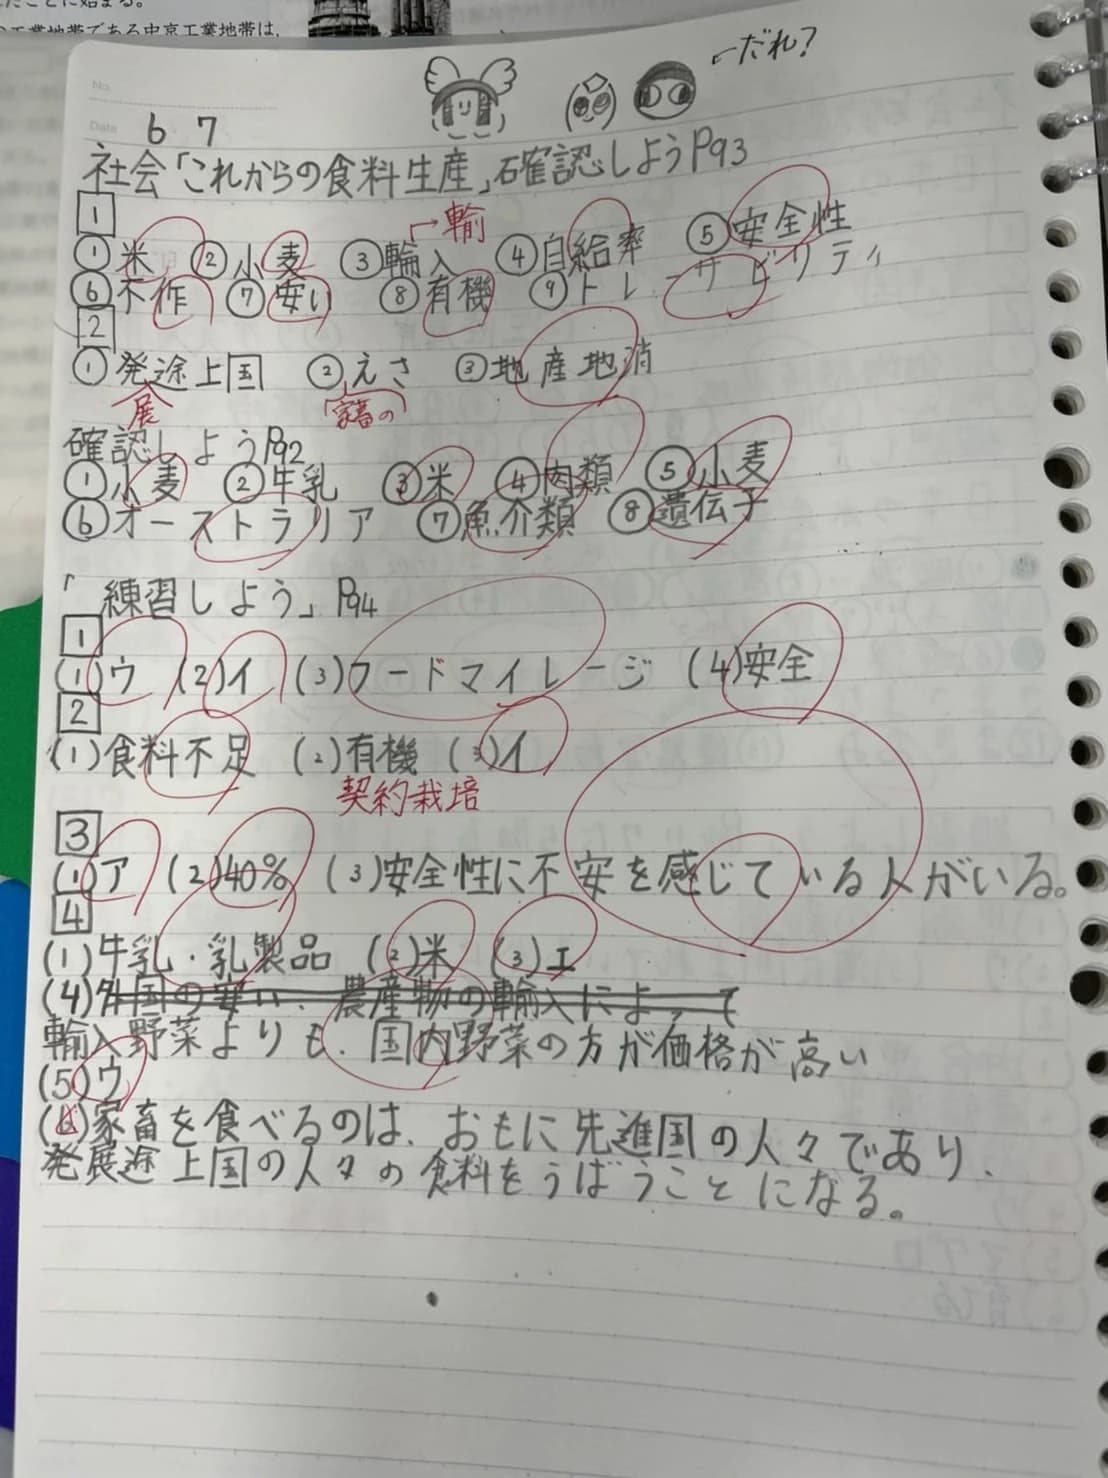 工業地帯である中京工業地帯は、
←だれ?
No.
Date 6 7
社会「これからの食料生産」確認しようP93
1
①米 ②小麦 ③輪入 ④自給率 ⑤安全性
輸
⑥不作 ⑦安い ⑧有機 ⑨トレーサビリティ
2
①発途上国 ②えさ ③地産地消
展 家畜の
確認しようP92
①小麦 ②牛乳 ③米 ④肉類 ⑤小麦
⑥オーストラリア ⑦魚介類 ⑧遺伝子
「練習しよう」P94
1
(1)ウ (2)イ (3)フードマイレージ (4)安全
2
(1)食料不足 (2)有機 (3)イ
契約栽培
3
(1)ア (2)40% (3)安全性に不安を感じている人がいる。
4
(1)牛乳・乳製品 (2)米 (3)エ
(4)外国の安い、農産物の輸入によって
輸入野菜よりも、国内野菜の方が価格が高い
(5)ウ
(6)家畜を食べるのは、おもに先進国の人々であり、
発展途上国の人々の食料をうばうことになる。